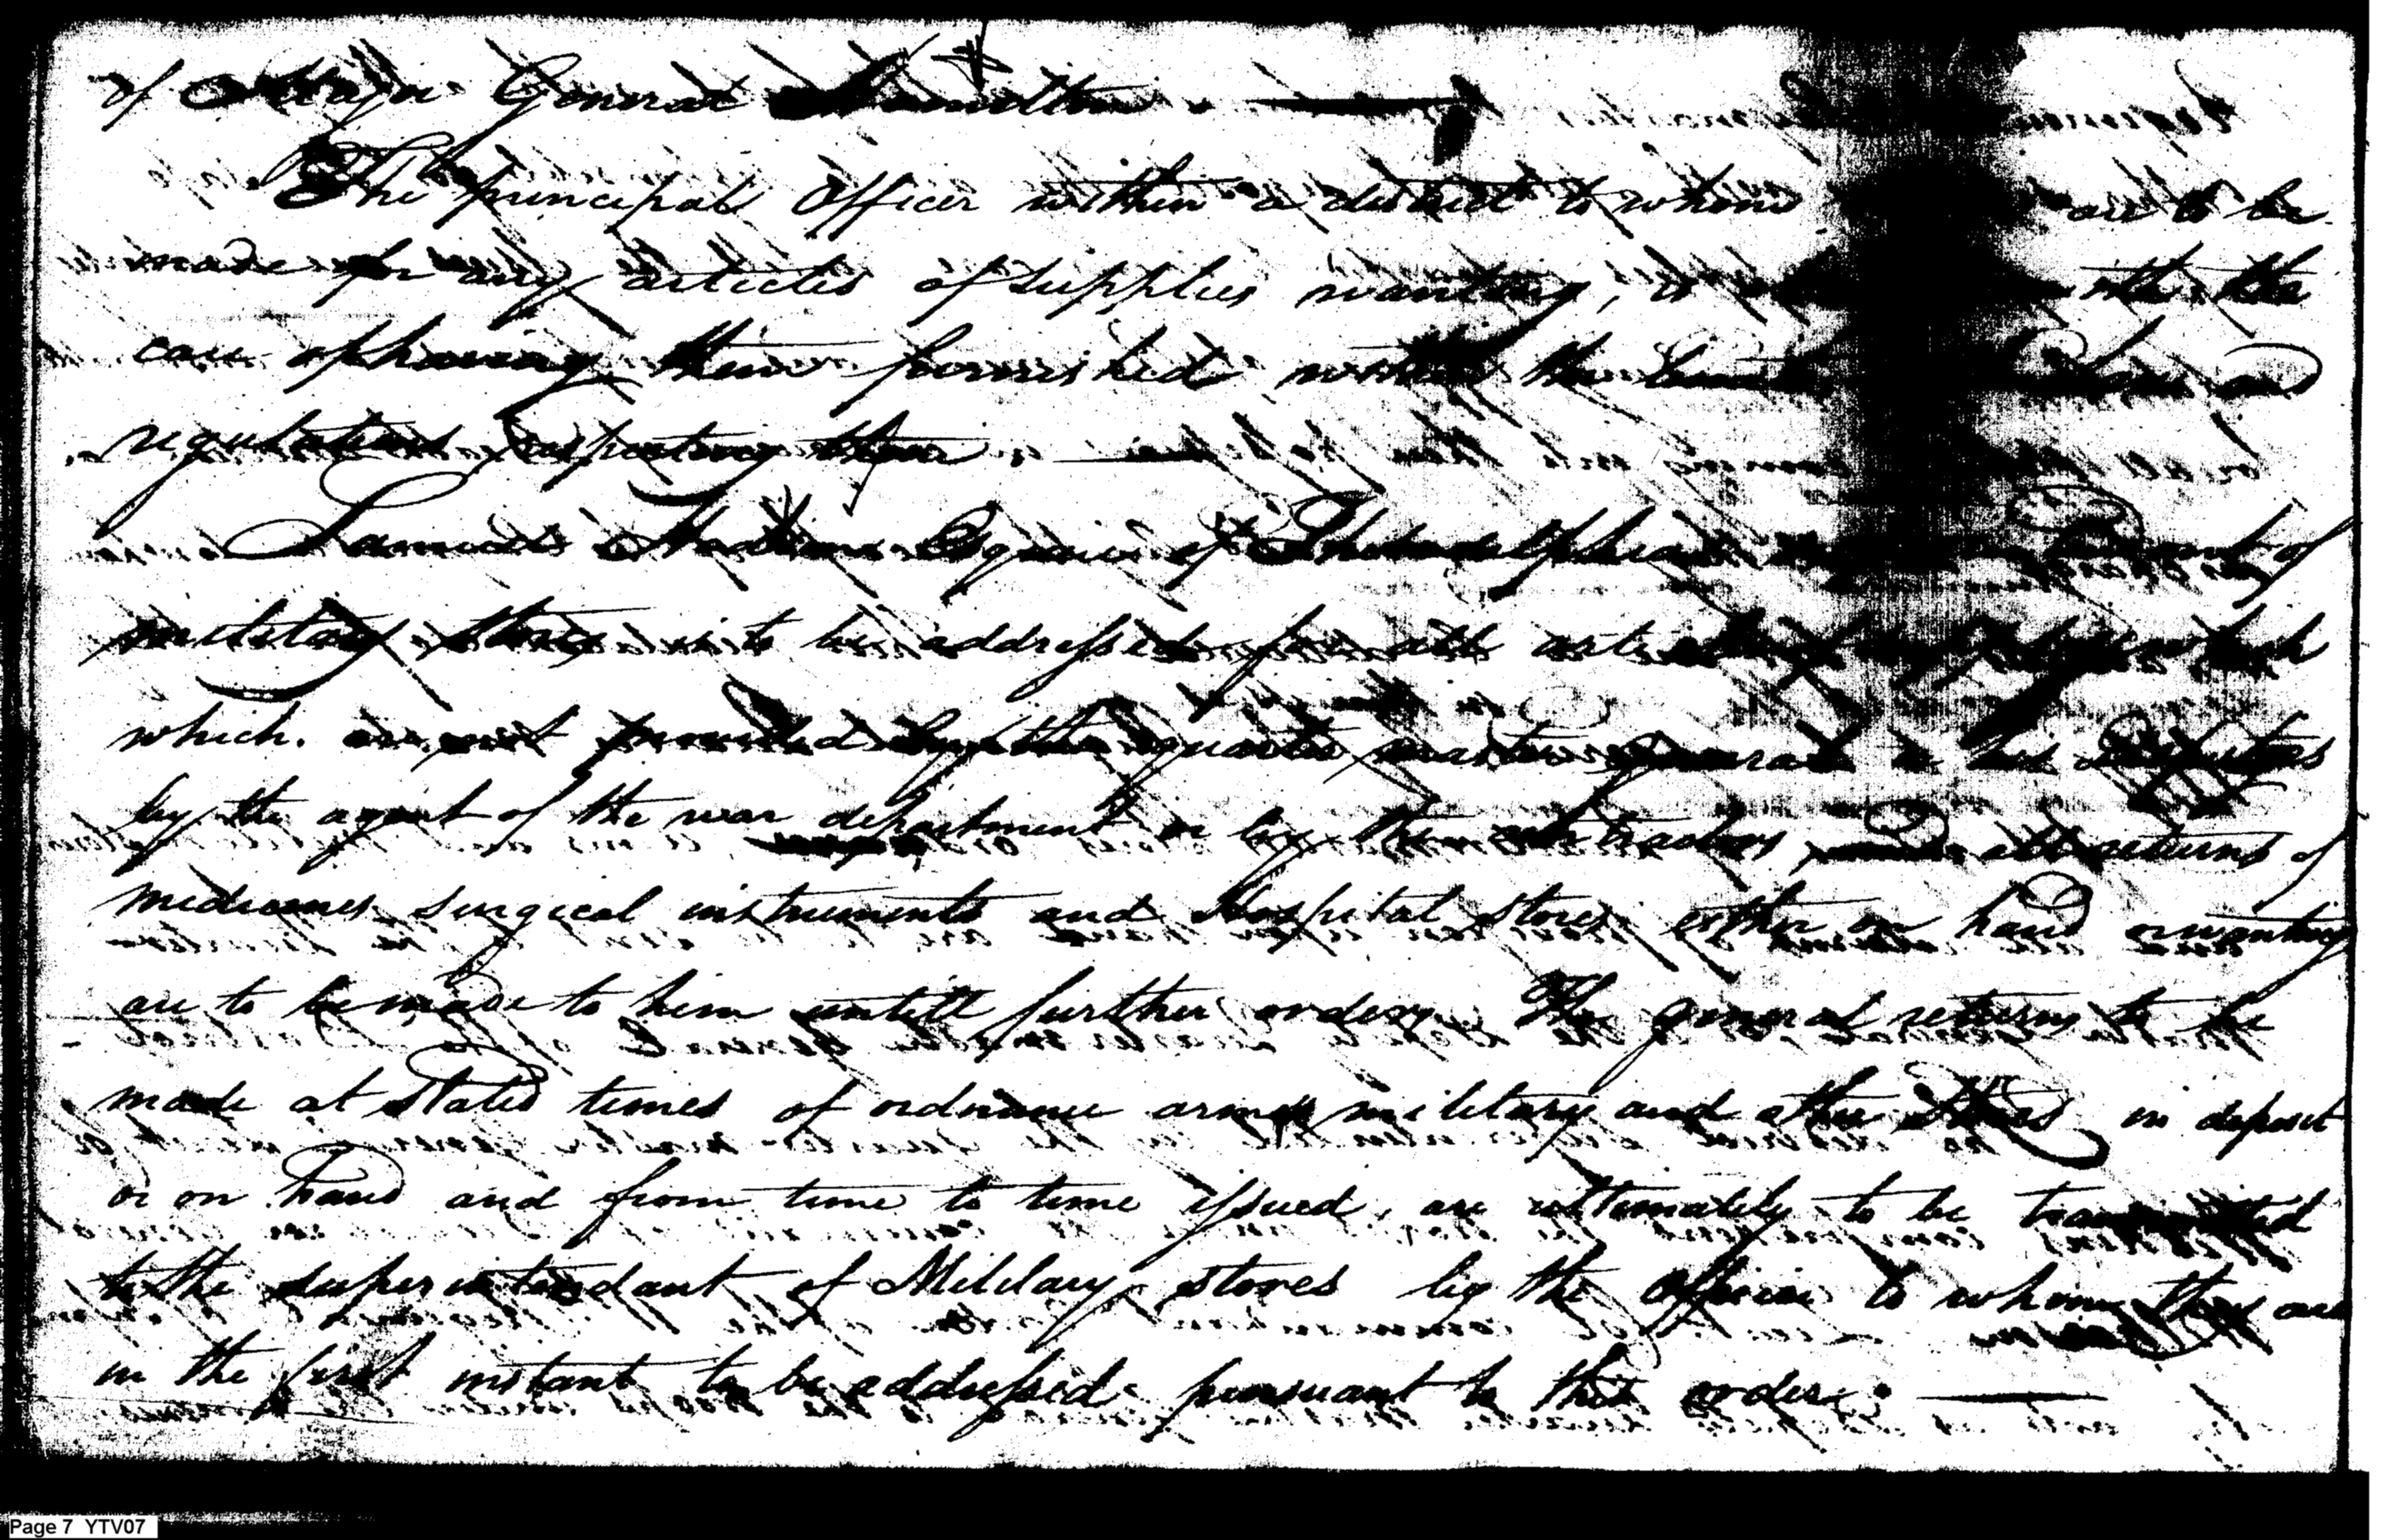 of Major General Hamilton
The principal Officer within a district to whom are to be
made for any articles of supplies wanting, is with the
care of having them furnished within the and
regulations respecting them
Samuel Hodgdon Esquire of Philadelphia of
military stores is to be addressed for all articles which
which. are not provided by the quarter master General or his deputies
by the agent of the war department or by the contractors, and all returns of
medicines surgical instruments and Hospital stores either on hand or wanting
are to be made to him untill further orders The general returns to be
made at stated times of ordnance arms military and other Stores in deposit
or on hand and from time to time issued, are ultimately to be transmitted
to the superintendant of Military stores by the Officer to whom they are
in the first instant to be addressed pursuant to this order.
Page 7 YTV07